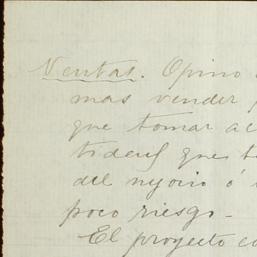 Ventas. Opino
mas vender
que tomar
que
del nyocio ó
poco riesgo -
El proyecto